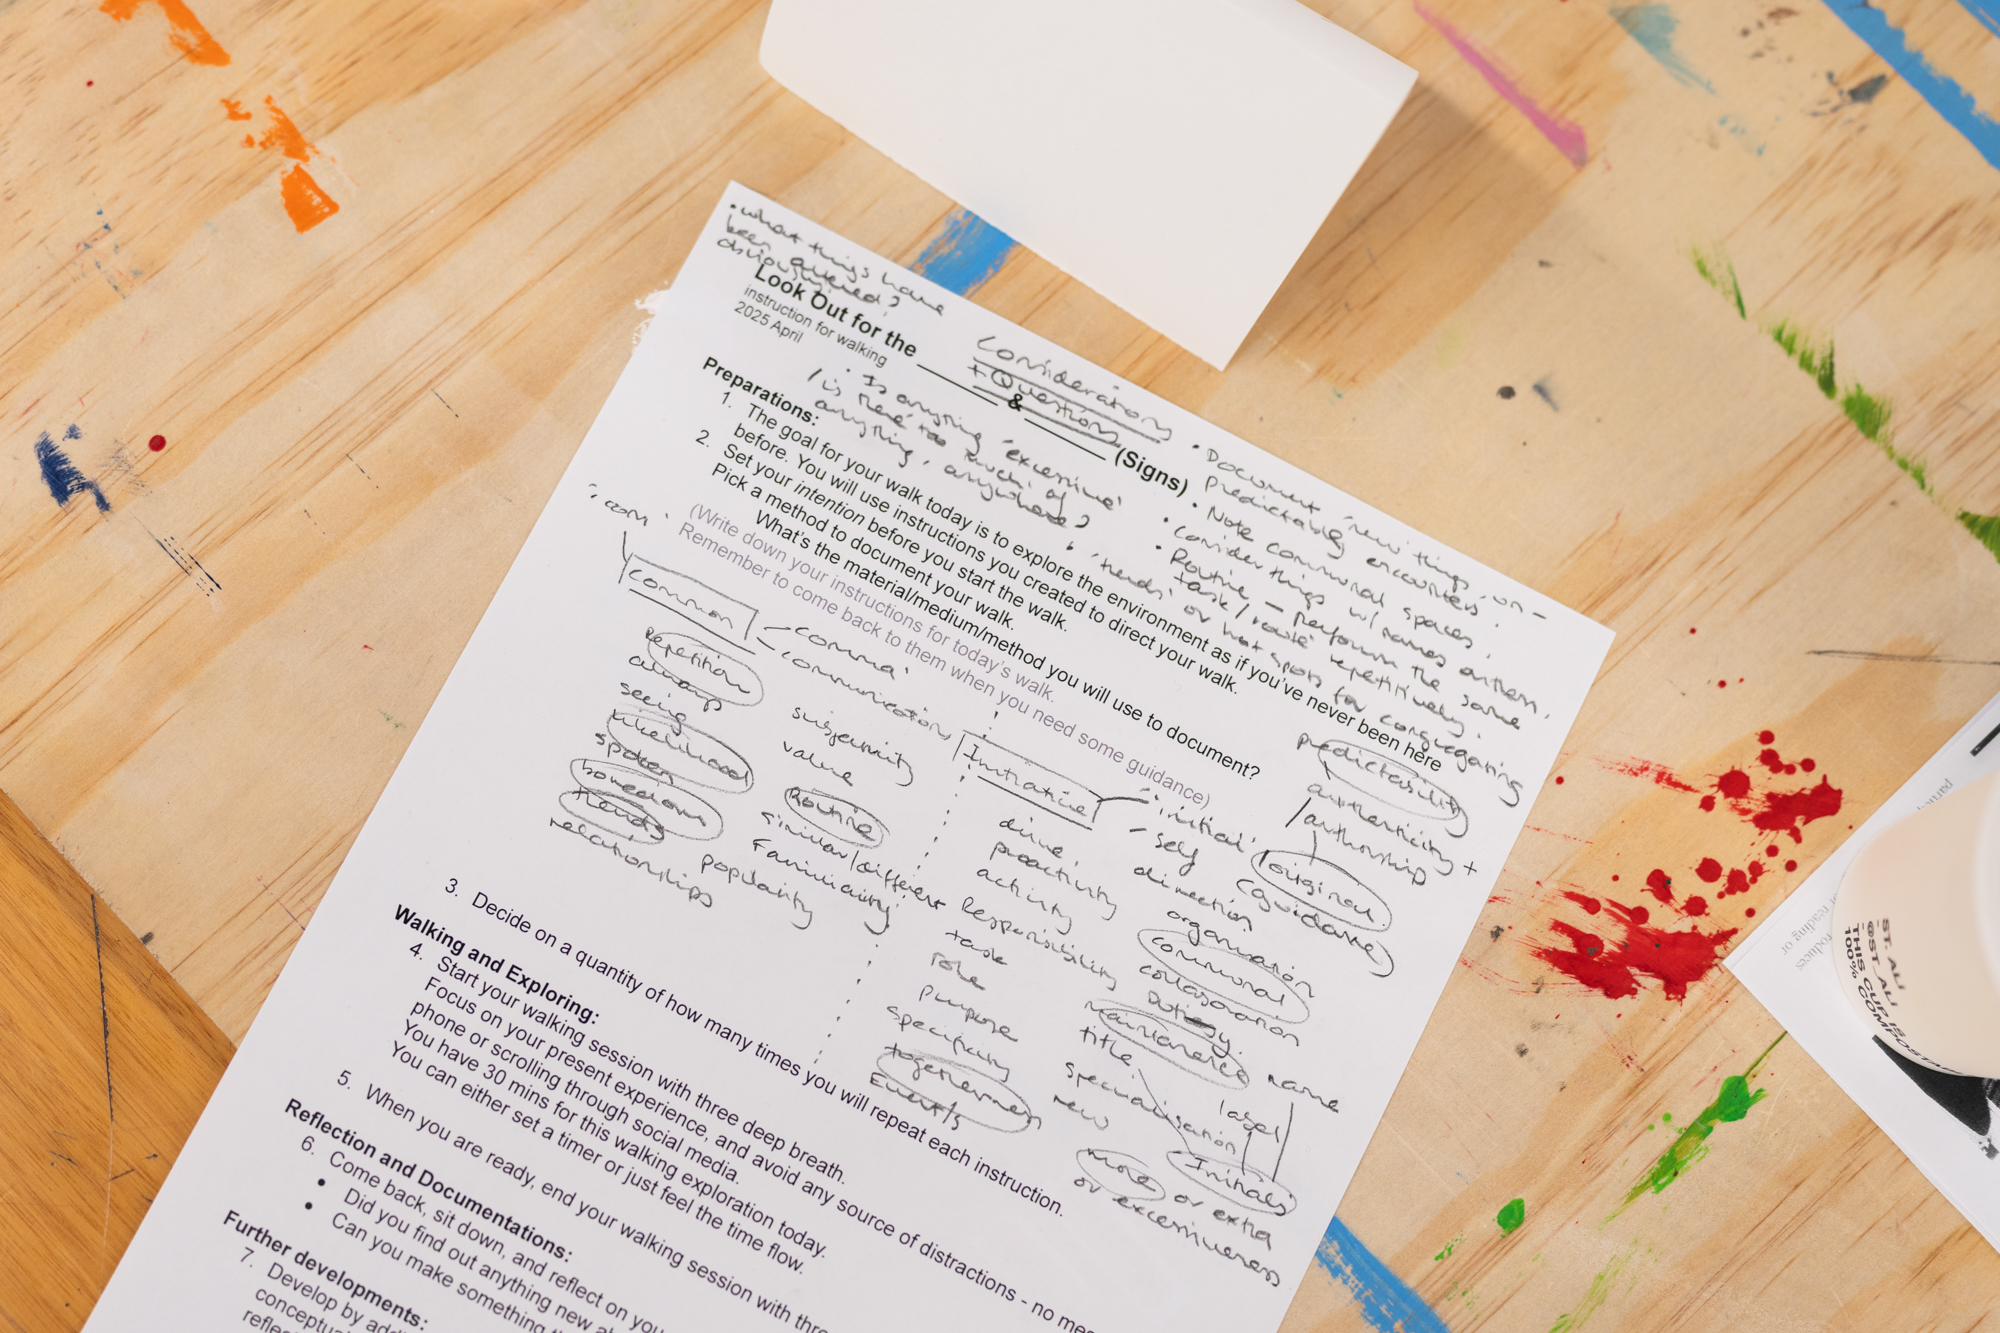 • what things have
been altered?
obviously
Look Out for the ________ & ________ (Signs)
instruction for walking
2025 April
Consideration
+ Questions
• Is anything 'excessive'
/ is there too much of
anything, anywhere?
• Document 'new things' on –
predictably encounters.
• Note communal spaces.
• Consider things w/ names on them.
• Routine – perform the same
task / route repetitively.
• 'trends' or hot spots for congregating
Preparations:
1. The goal for your walk today is to explore the environment as if you've never been here
before. You will use instructions you created to direct your walk.
2. Set your intention before you start the walk.
Pick a method to document your walk.
What's the material/medium/method you will use to document?
(Write down your instructions for today's walk.
Remember to come back to them when you need some guidance)
'com'
Common
– comma
communication
repetition
always
seeing
likelihood
spoken
boredom
trends
relationships
subjectivity
value
Routine
similar/different
Familiarity
popularity
Initiative
'initial'
– self
direction
organisation
communal
collaboration
maintenance
title
specialisation
new
more or extra
or excessiveness
drive
proactivity
activity
Responsibility
task
role
purpose
specificity
togetherness
Event/s
predictability
authenticity +
/authorship
original
(guidance)
name
label
Initials
3. Decide on a quantity of how many times you will repeat each instruction.
Walking and Exploring:
4. Start your walking session with three deep breath.
Focus on your present experience, and avoid any source of distractions - no mes
phone or scrolling through social media.
You have 30 mins for this walking exploration today.
You can either set a timer or just feel the time flow.
5. When you are ready, end your walking session with thre
Reflection and Documentations:
6. Come back, sit down, and reflect on you
• Did you find out anything new a
• Can you make something
Further developments:
7. Develop by addi
conceptua
refle
ST. ALi
@ST_ALi
THIS CUP IS
100% COMPOSTA
reading or